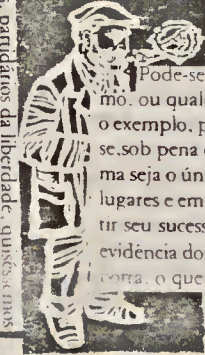 partidários da liberdade, quiséssemos
Pode-se
mo, ou qual
o exemplo, p
se, sob pena
ma seja o ún
lugares e em
tir seu sucess
evidência do
o que